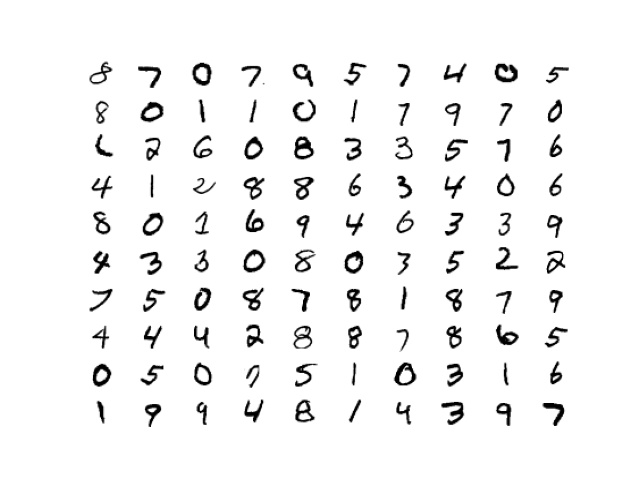 8 7 0 7 9 5 7 4 0 5
8 0 1 1 0 1 7 9 7 0
6 2 6 0 8 3 3 5 7 6
4 1 2 8 8 6 3 4 0 6
8 0 1 6 9 4 6 3 3 9
4 3 3 0 8 0 3 5 2 2
7 5 0 8 7 8 1 8 7 9
4 4 4 2 8 8 7 8 6 5
0 5 0 7 5 1 0 3 1 6
1 9 9 4 8 1 4 3 9 7